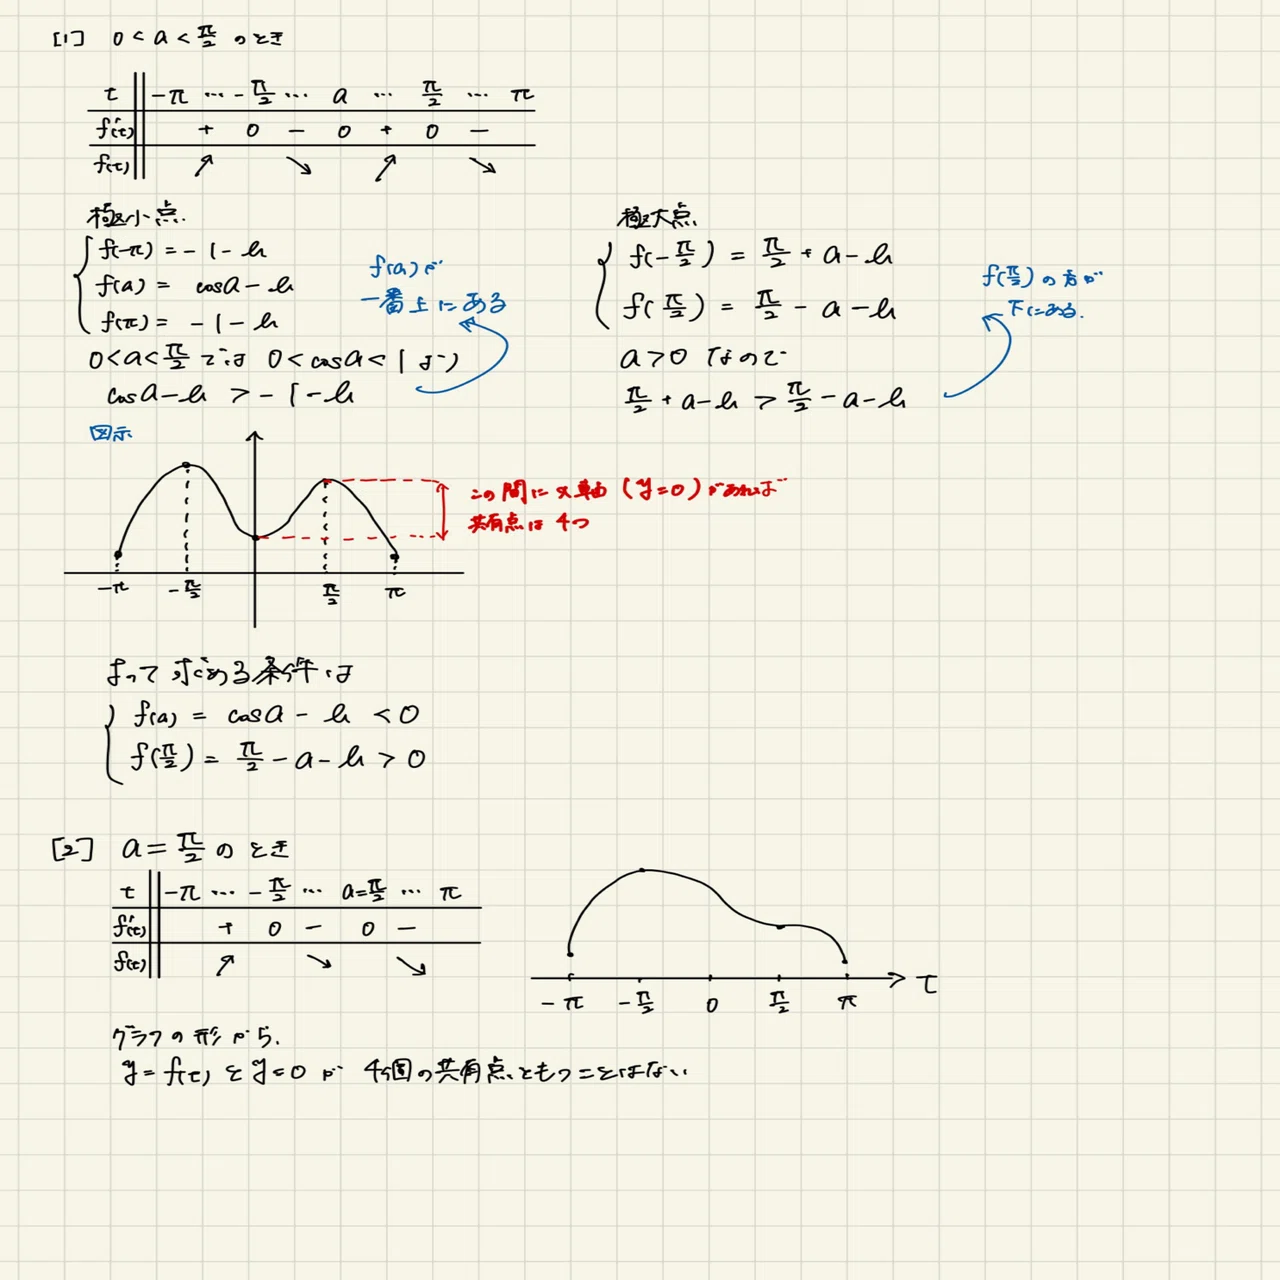 [1] 0 < a < π/2 のとき
t -π … -π/2 … a … π/2 … π
f'(t) + 0 - 0 + 0 -
f(t) ↗ ↘ ↗ ↘
極小点.
f(-π) = -1-k
f(a) = cosa-k
f(π) = -1-k
0<a<π/2 では 0<cosa<1 より
cosa-k > -1-k
f(a)が
一番上にある
極大点
f(-π/2) = π/2 + a-k
f(π/2) = π/2 - a-k
a>0 なので
π/2 + a-k > π/2 - a-k
f(π/2)の方が
下にある.
図示
この間にx軸 (y=0)があれば
共有点は4つ
-π -π/2 π/2 π
よって求める条件は
f(a) = cosa - k < 0
f(π/2) = π/2 - a - k > 0
[2] a = π/2 のとき
t -π … -π/2 … a=π/2 … π
f'(t) + 0 - 0 -
f(t) ↗ ↘ ↘
t
-π -π/2 0 π/2 π
グラフの形から.
y=f(t) と y=0 が 4個の共有点ともつことはない